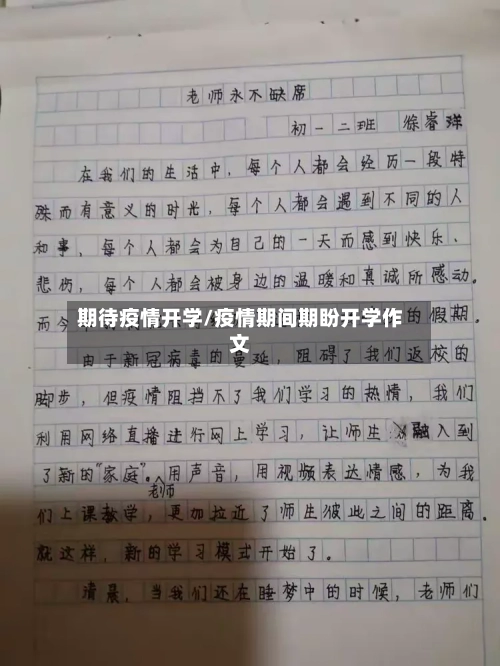 老师永不缺席
初一二班 徐睿祥
在我们的生活中，每个人都会经历一段特
殊而有意义的时光，每个人都会遇到不同的人
和事，每个人都会为自己的一天而感到快乐、
悲伤，每个人都会被身边的温暖和真诚所感动。
而今
的假期。
期待疫情开学/疫情期间期盼开学作
文
由于新冠病毒的蔓延，阻碍了我们返校的
脚步，但疫情阻挡不了我们学习的热情，我们
利用网络直播进行网上学习，让师生融入到
了新的“家庭”。用声音，用视频表达情感，为我
老师
们上课教学，更加拉近了师生彼此之间的距离。
就这样，新的学习模式开始了。
清晨，当我们还在睡梦中的时候，老师们